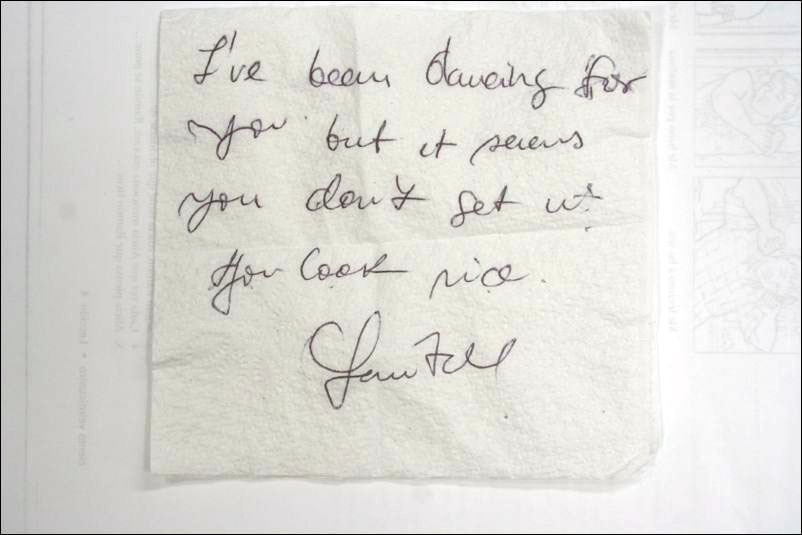 I've been dancing for
you but it seems
you don't get it
You look nice.